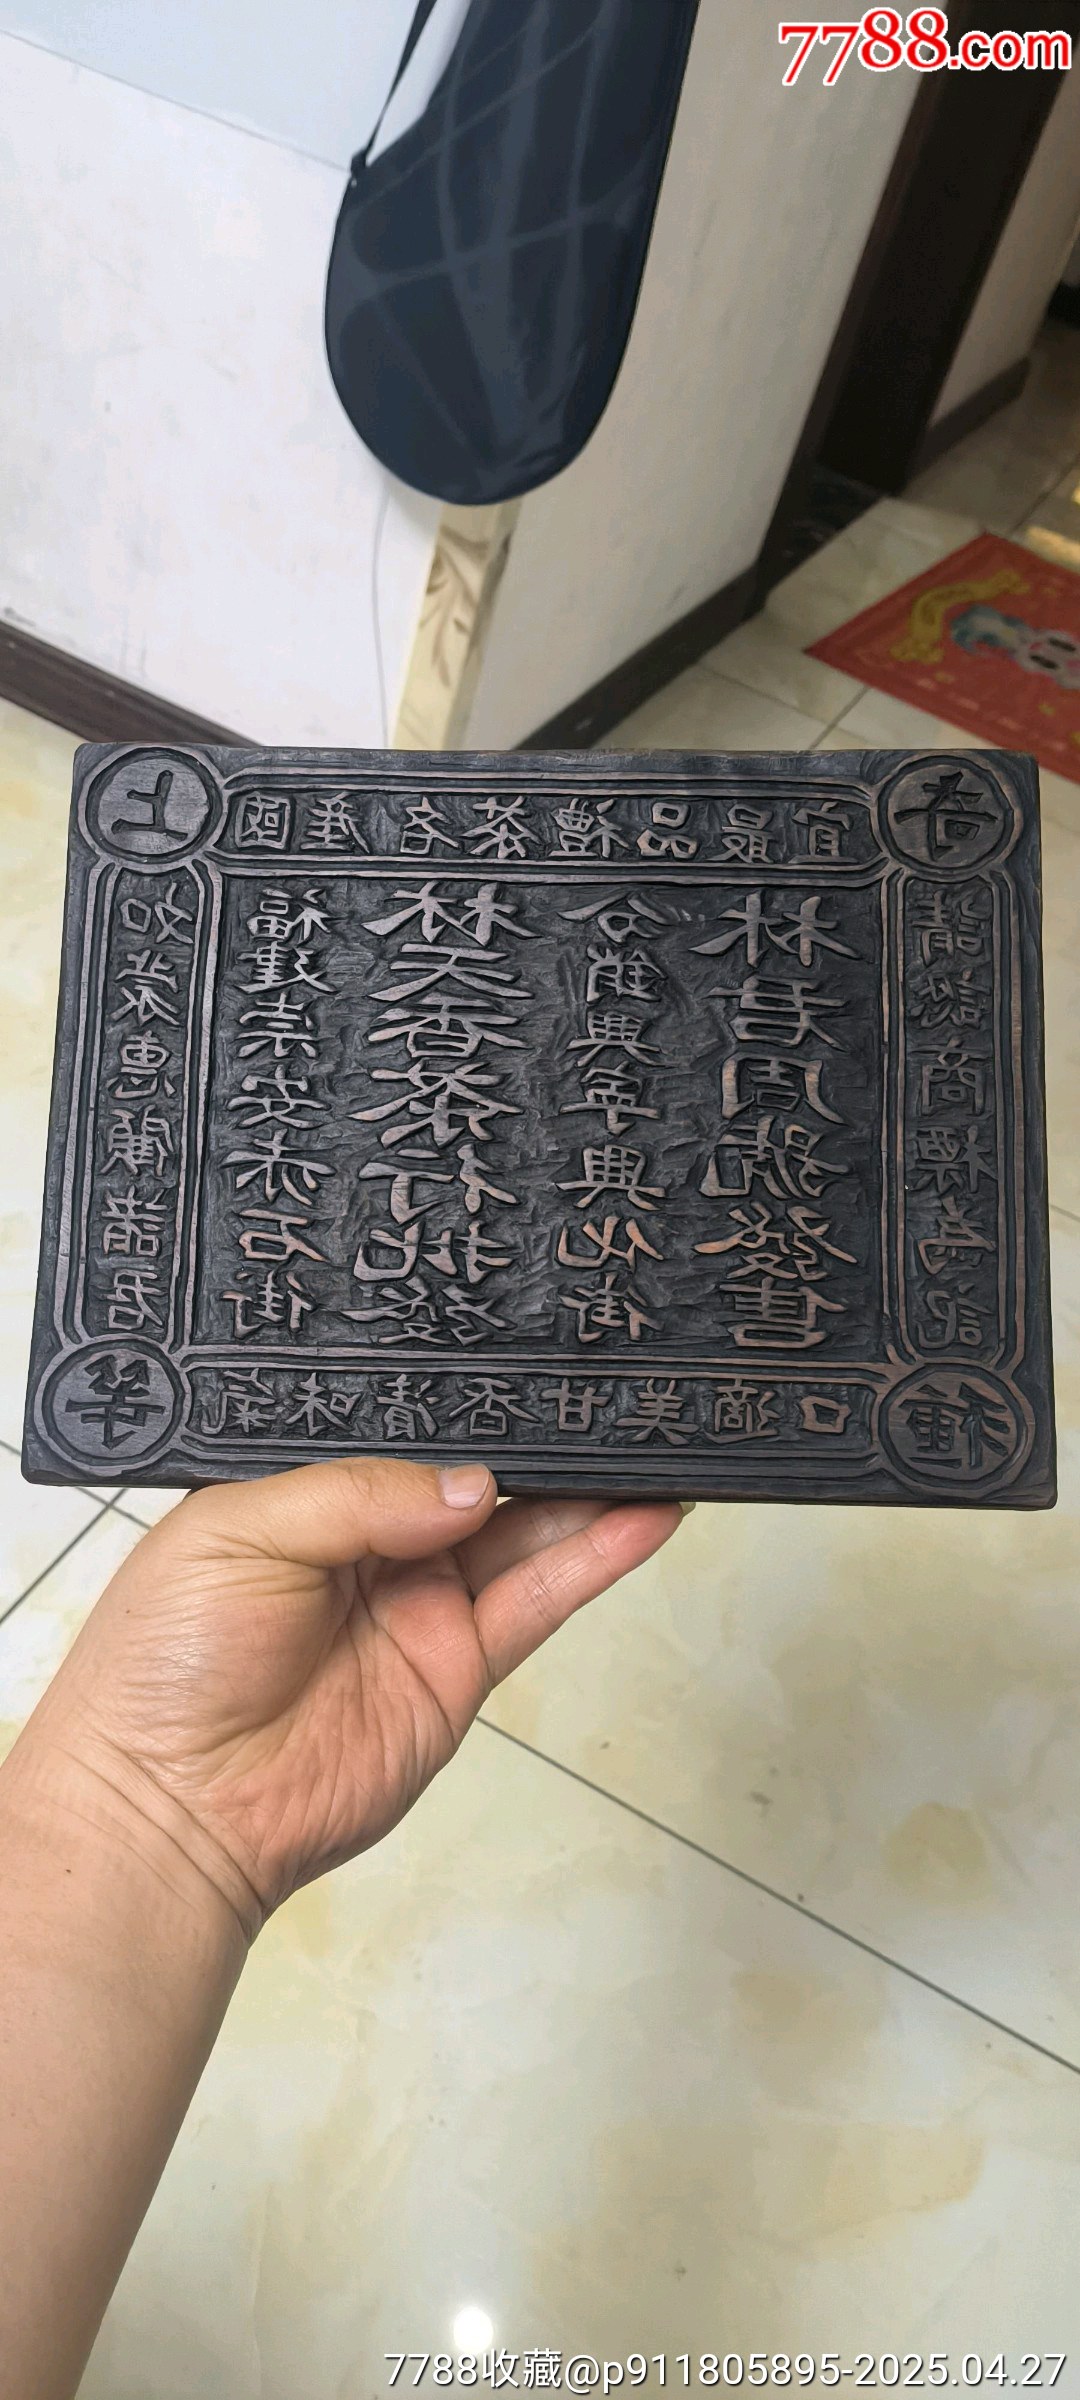 7788.com
上等奇種
國產名茶禮品最宜
如蒙惠顧諸君
福建崇安赤石街
林天香茶行批發
分銷興寧興化街
林君周號發售
請認商標為記
氣味清香甘美適口
7788收藏@p911805895-2025.04.27